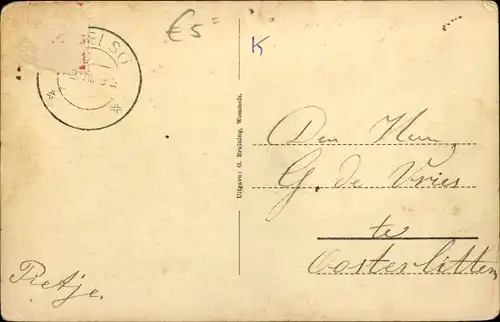 €5=
K
Uitgave: G. Bruining, Wommels.
Den Heer
G. de Vries
te
Oosterlittens
Pietje.